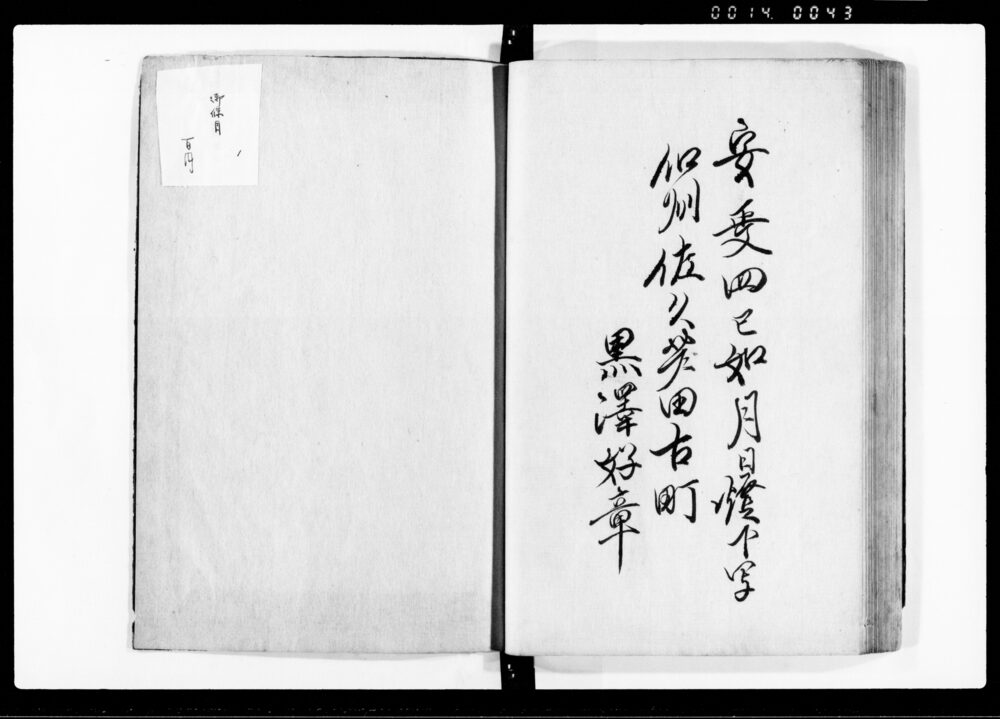 0014. 0043
安政四巳如月日燈下写
信州佐久芦田古町
黒澤好章
御條目
百円